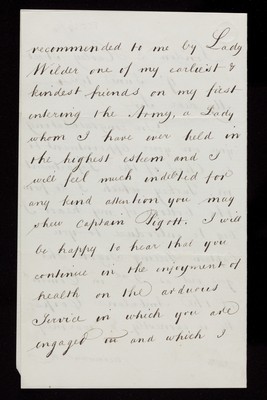 recommended to me by Lady
Wilder one of my earliest &
kindest friends on my first
entering the Army, a Lady
whom I have ever held in
the highest esteem and I
will feel much indebted for
any kind attention you may
shew Captain Pigott. I will
be happy to hear that you
continue in the enjoyment of
health on the arduous
Service in which you are
engaged in and which I